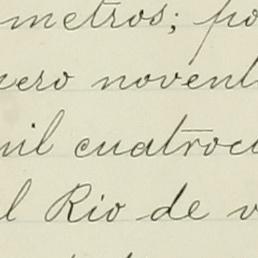 metros; po
ero novent
mil cuatroci
l Rio de v